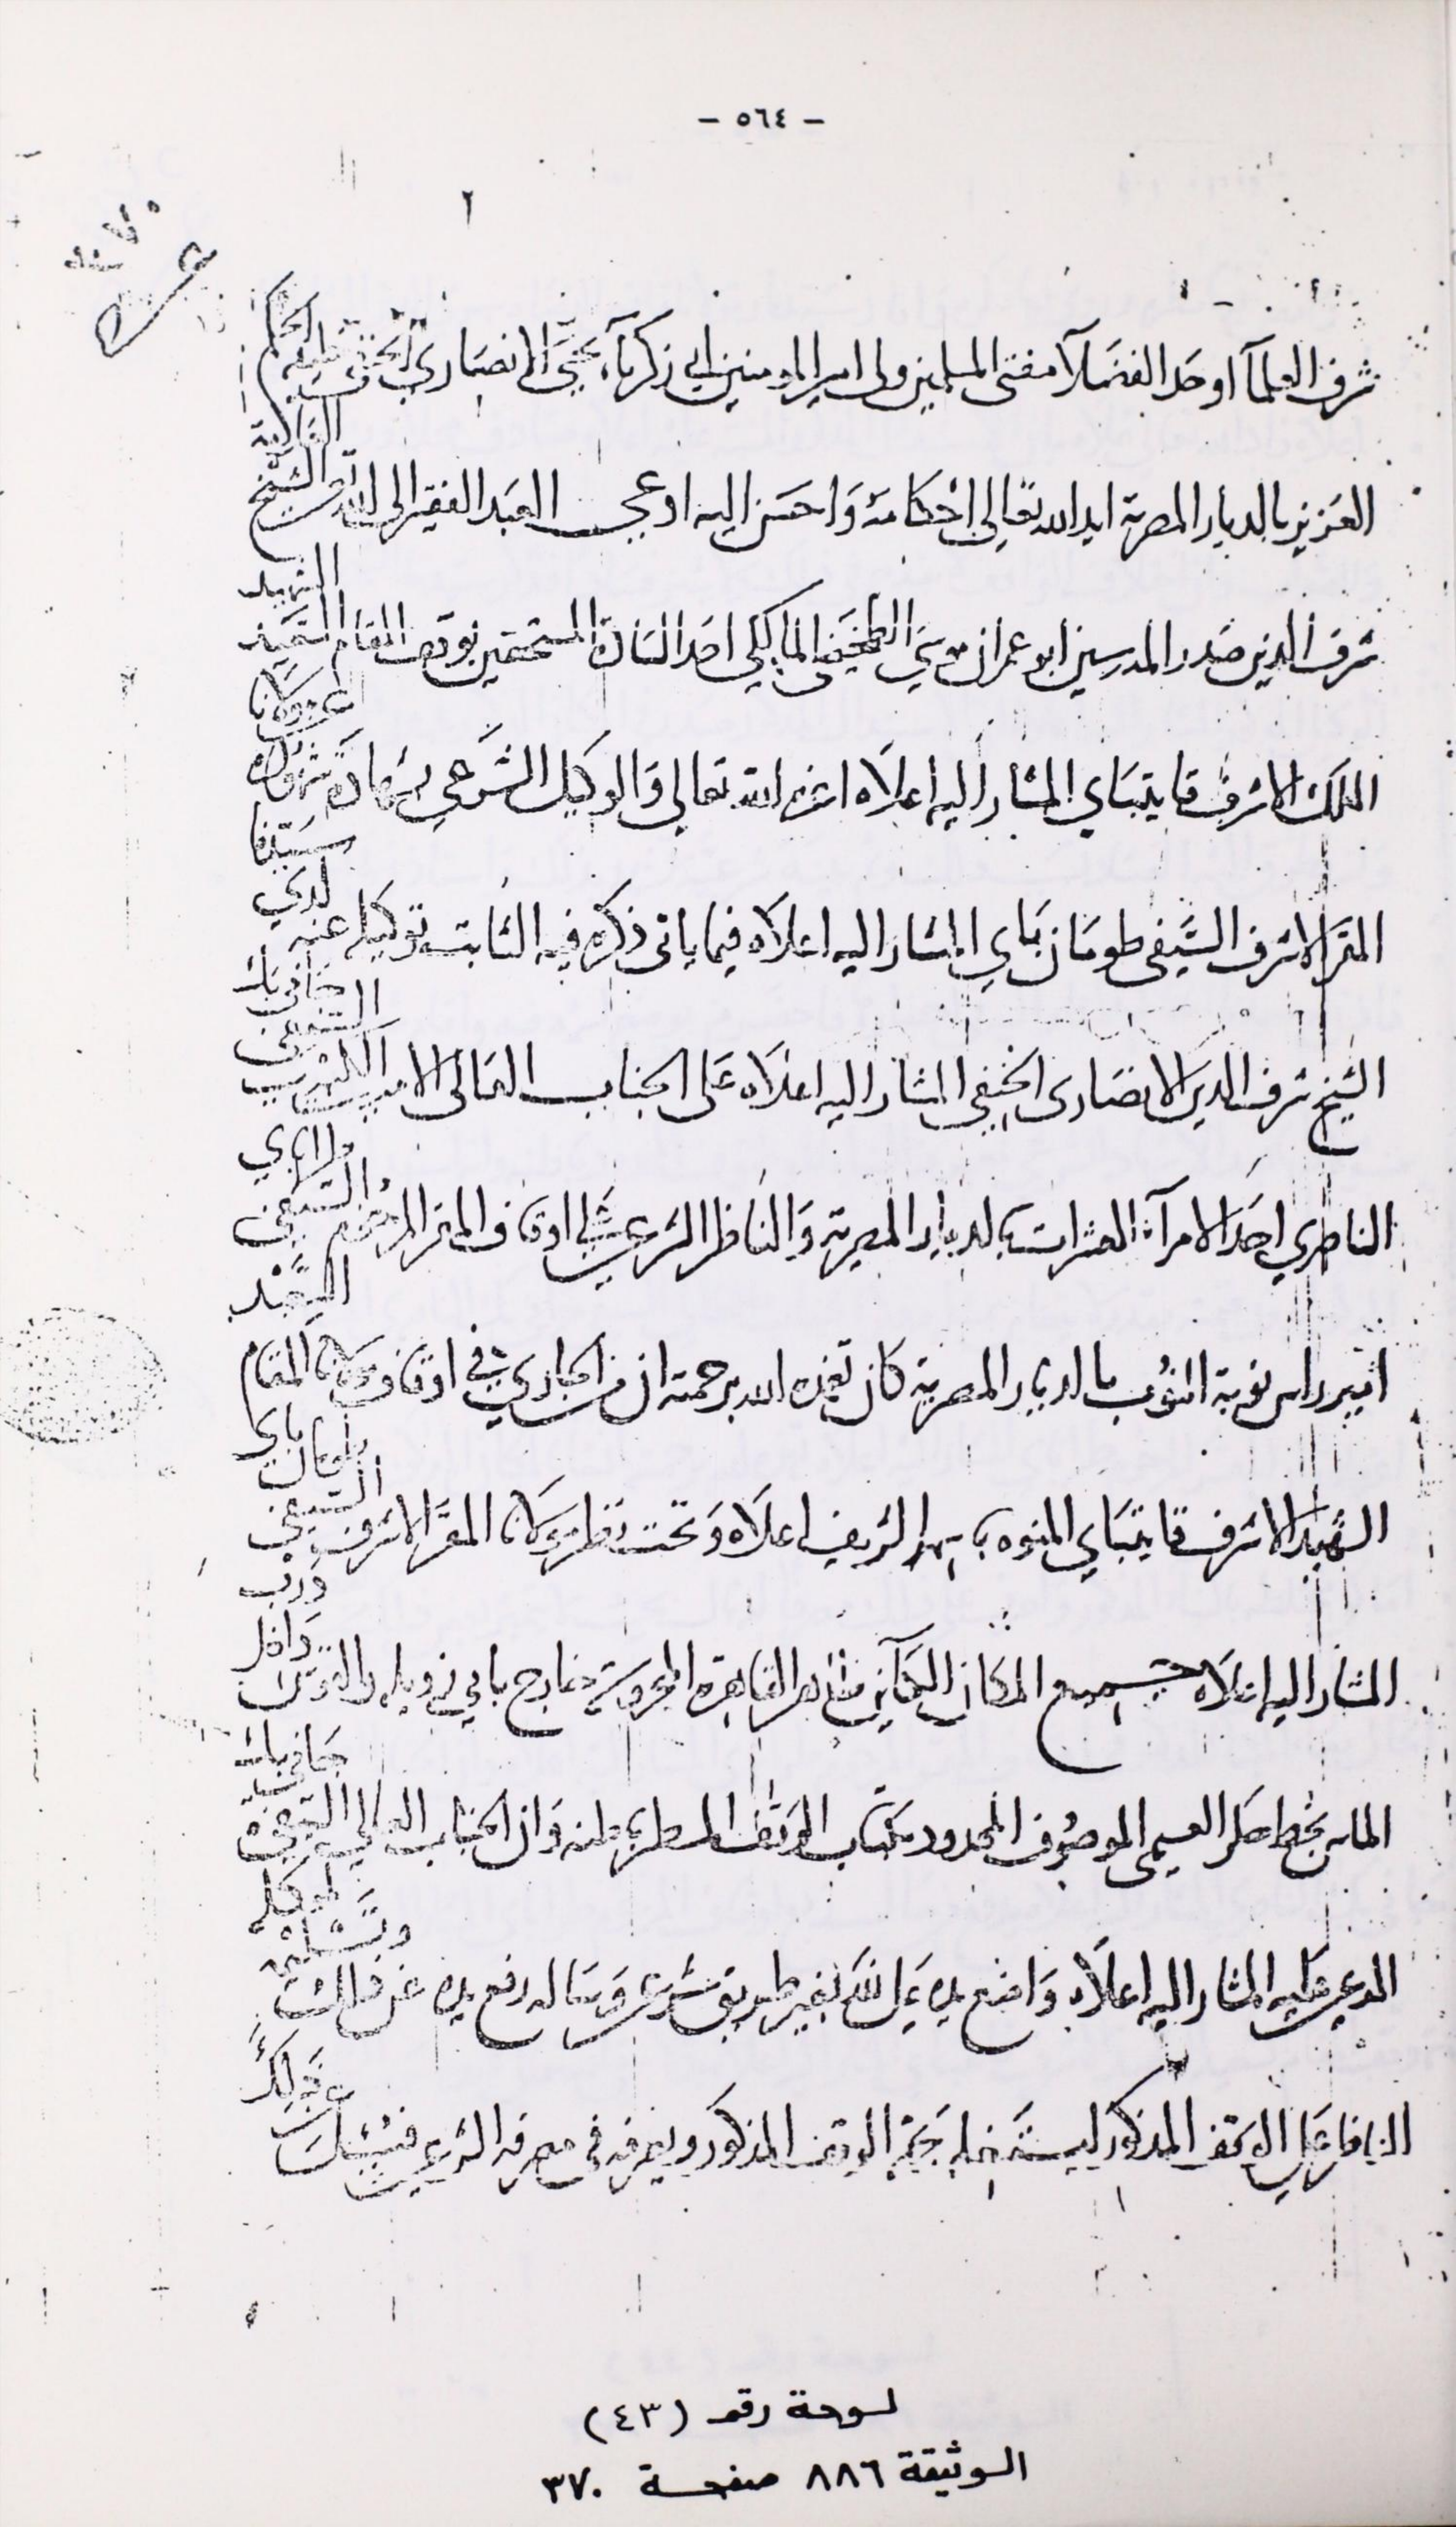 - ٥٦٤ -
٢
شرف العلمآ اوحد الفضلآ مفتى المسلمين ولى امير المومنين ابى زكريآ يحيى الانصارى الحنفى خليفة الحكم
العزيز بالديار المصرية ايد الله تعالى احكامه واحسن اليه ادعى العبد الفقير الى الله تعالى الشيخ
شرف الدين صدر المدرسين ابو عمران موسى المالكى احد السادة المستحقين بوقف المقام السعيد الشهيد
الملك الاشرف قايتباي المشار اليه اعلاه اعزه الله تعالى والوكيل الشرعي بشهادة شهوده عن مولانا
المقر الاشرف السيفى طومان باي المشار اليه اعلاه فيما ياتى ذكره فيه الثابت توكيله عنه لدي سيدنا
الشيخ شرف الدين الانصارى الحنفى المشار اليه اعلاه على الجناب العالى الامير السيفى جانى بك
الناصري احد الامرآ العشرات بالديار المصرية والناظر الشرعى على اوقاف المقر المرحوم السيفى
امير راس نوبة النوب بالديار المصرية كان تغمده الله برحمته ان من الجاري في اوقاف مولانا المقام السعيد
الشهيد الاشرف قايتباي المنوه باسمه الشريف اعلاه وتحت نظر مولانا المقر الاشرف السيفى طومان باي
المشار اليه اعلاه جميع المكان الكاين بظاهر القاهرة المحروسة خارج بابي زويله والقوس داخل درب
الماس بخط حكر الموصوف المحدود بكتاب الوقف المسطر باطنه وان الجناب العالي السيفى جانى بك
المدعى عليه المشار اليه اعلاه واضع يده على ذلك بغير طريق شرعى وساله رفع يده عن ذلك وتسليمه لموكله
الناظر على الوقف المذكور ليستغله لجهة الوقف المذكور ويصرفه فى مصرفه الشرعى فسئل عن ذلك
لوحة رقم (٤٣)
الوثيقة ٨٨٦ صفحة ٣٧٠